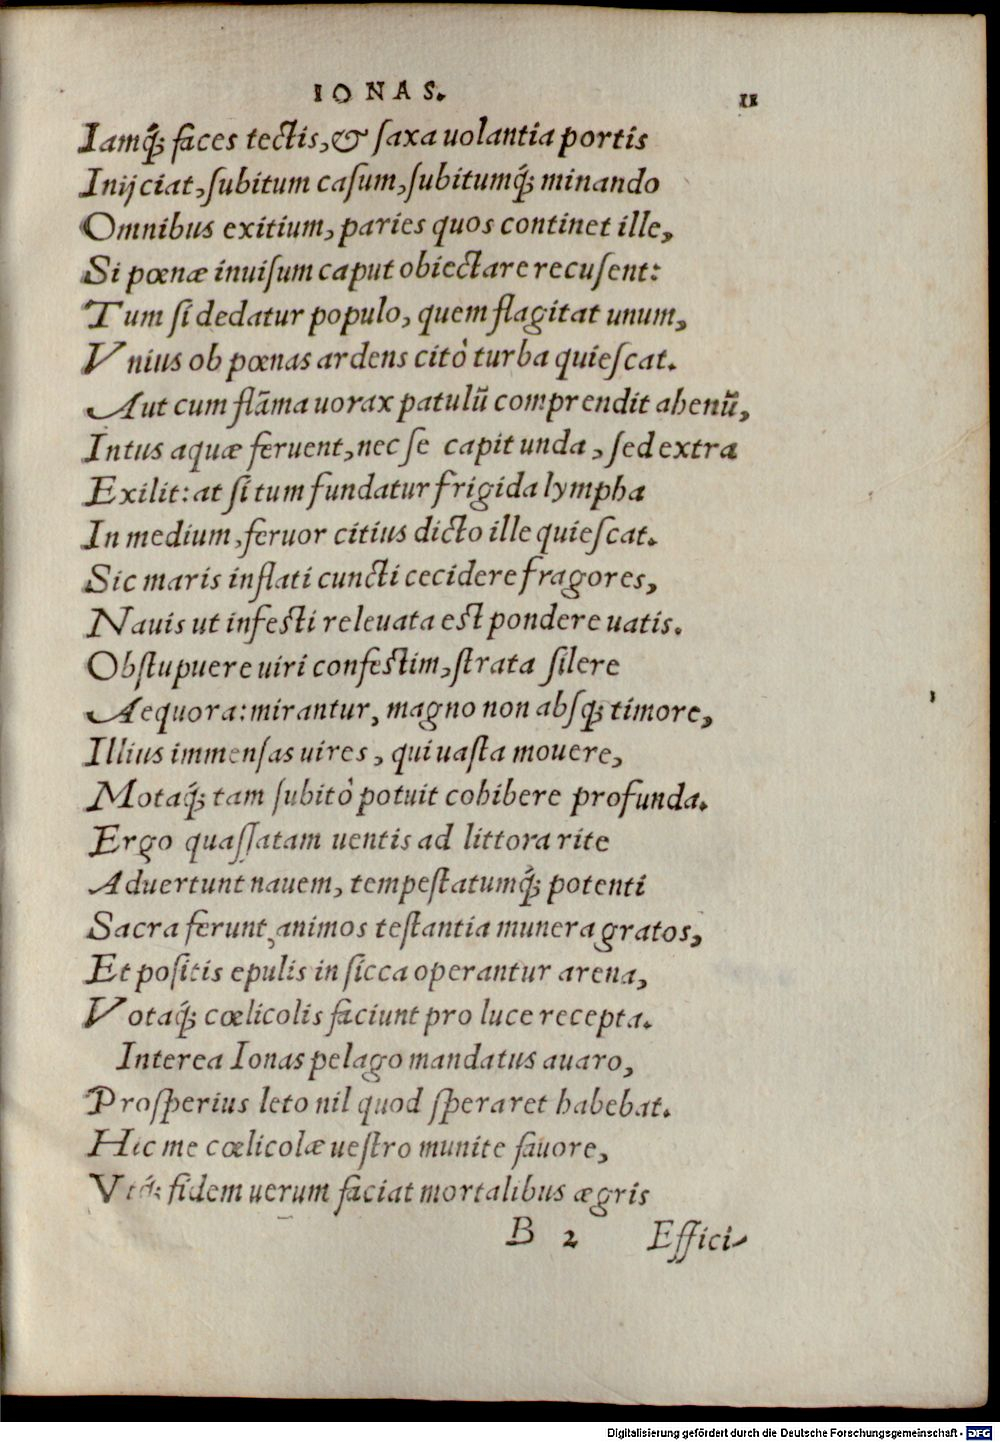 IONAS. 11
Iamq́; faces tectis, & ſaxa uolantia portis
Inijciat, ſubitum caſum, ſubitumq́; minando
Omnibus exitium, paries quos continet ille,
Si pœnæ inuiſum caput obiectare recuſent:
Tum ſi dedatur populo, quem flagitat unum,
Vnius ob pœnas ardens citò turba quieſcat.
Aut cum flāma uorax patulũ comprendit ahenũ,
Intus aquæ feruent, nec ſe capit unda, ſed extra
Exilit: at ſi tum fundatur frigida lympha
In medium, feruor citius dicto ille quieſcat.
Sic maris inflati cuncti cecidere fragores,
Nauis ut infeſti releuata eſt pondere uatis.
Obſtupuere uiri confeſtim, ſtrata ſilere
Aequora: mirantur, magno non abſq; timore,
Illius immenſas uires, qui uaſta mouere,
Motaq́; tam ſubitò potuit cohibere profunda.
Ergo quaſſatam uentis ad littora rite
Aduertunt nauem, tempeſtatumq́; potenti
Sacra ferunt, animos teſtantia munera gratos,
Et poſitis epulis in ſicca operantur arena,
Votaq́; cœlicolis faciunt pro luce recepta.
Interea Ionas pelago mandatus auaro,
Proſperius leto nil quod ſperaret habebat.
Hic me cœlicolæ ueſtro munite fauore,
Vtq́; fidem uerum faciat mortalibus ægris
B 2 Effici-
Digitalisierung gefördert durch die Deutsche Forschungsgemeinschaft - DFG